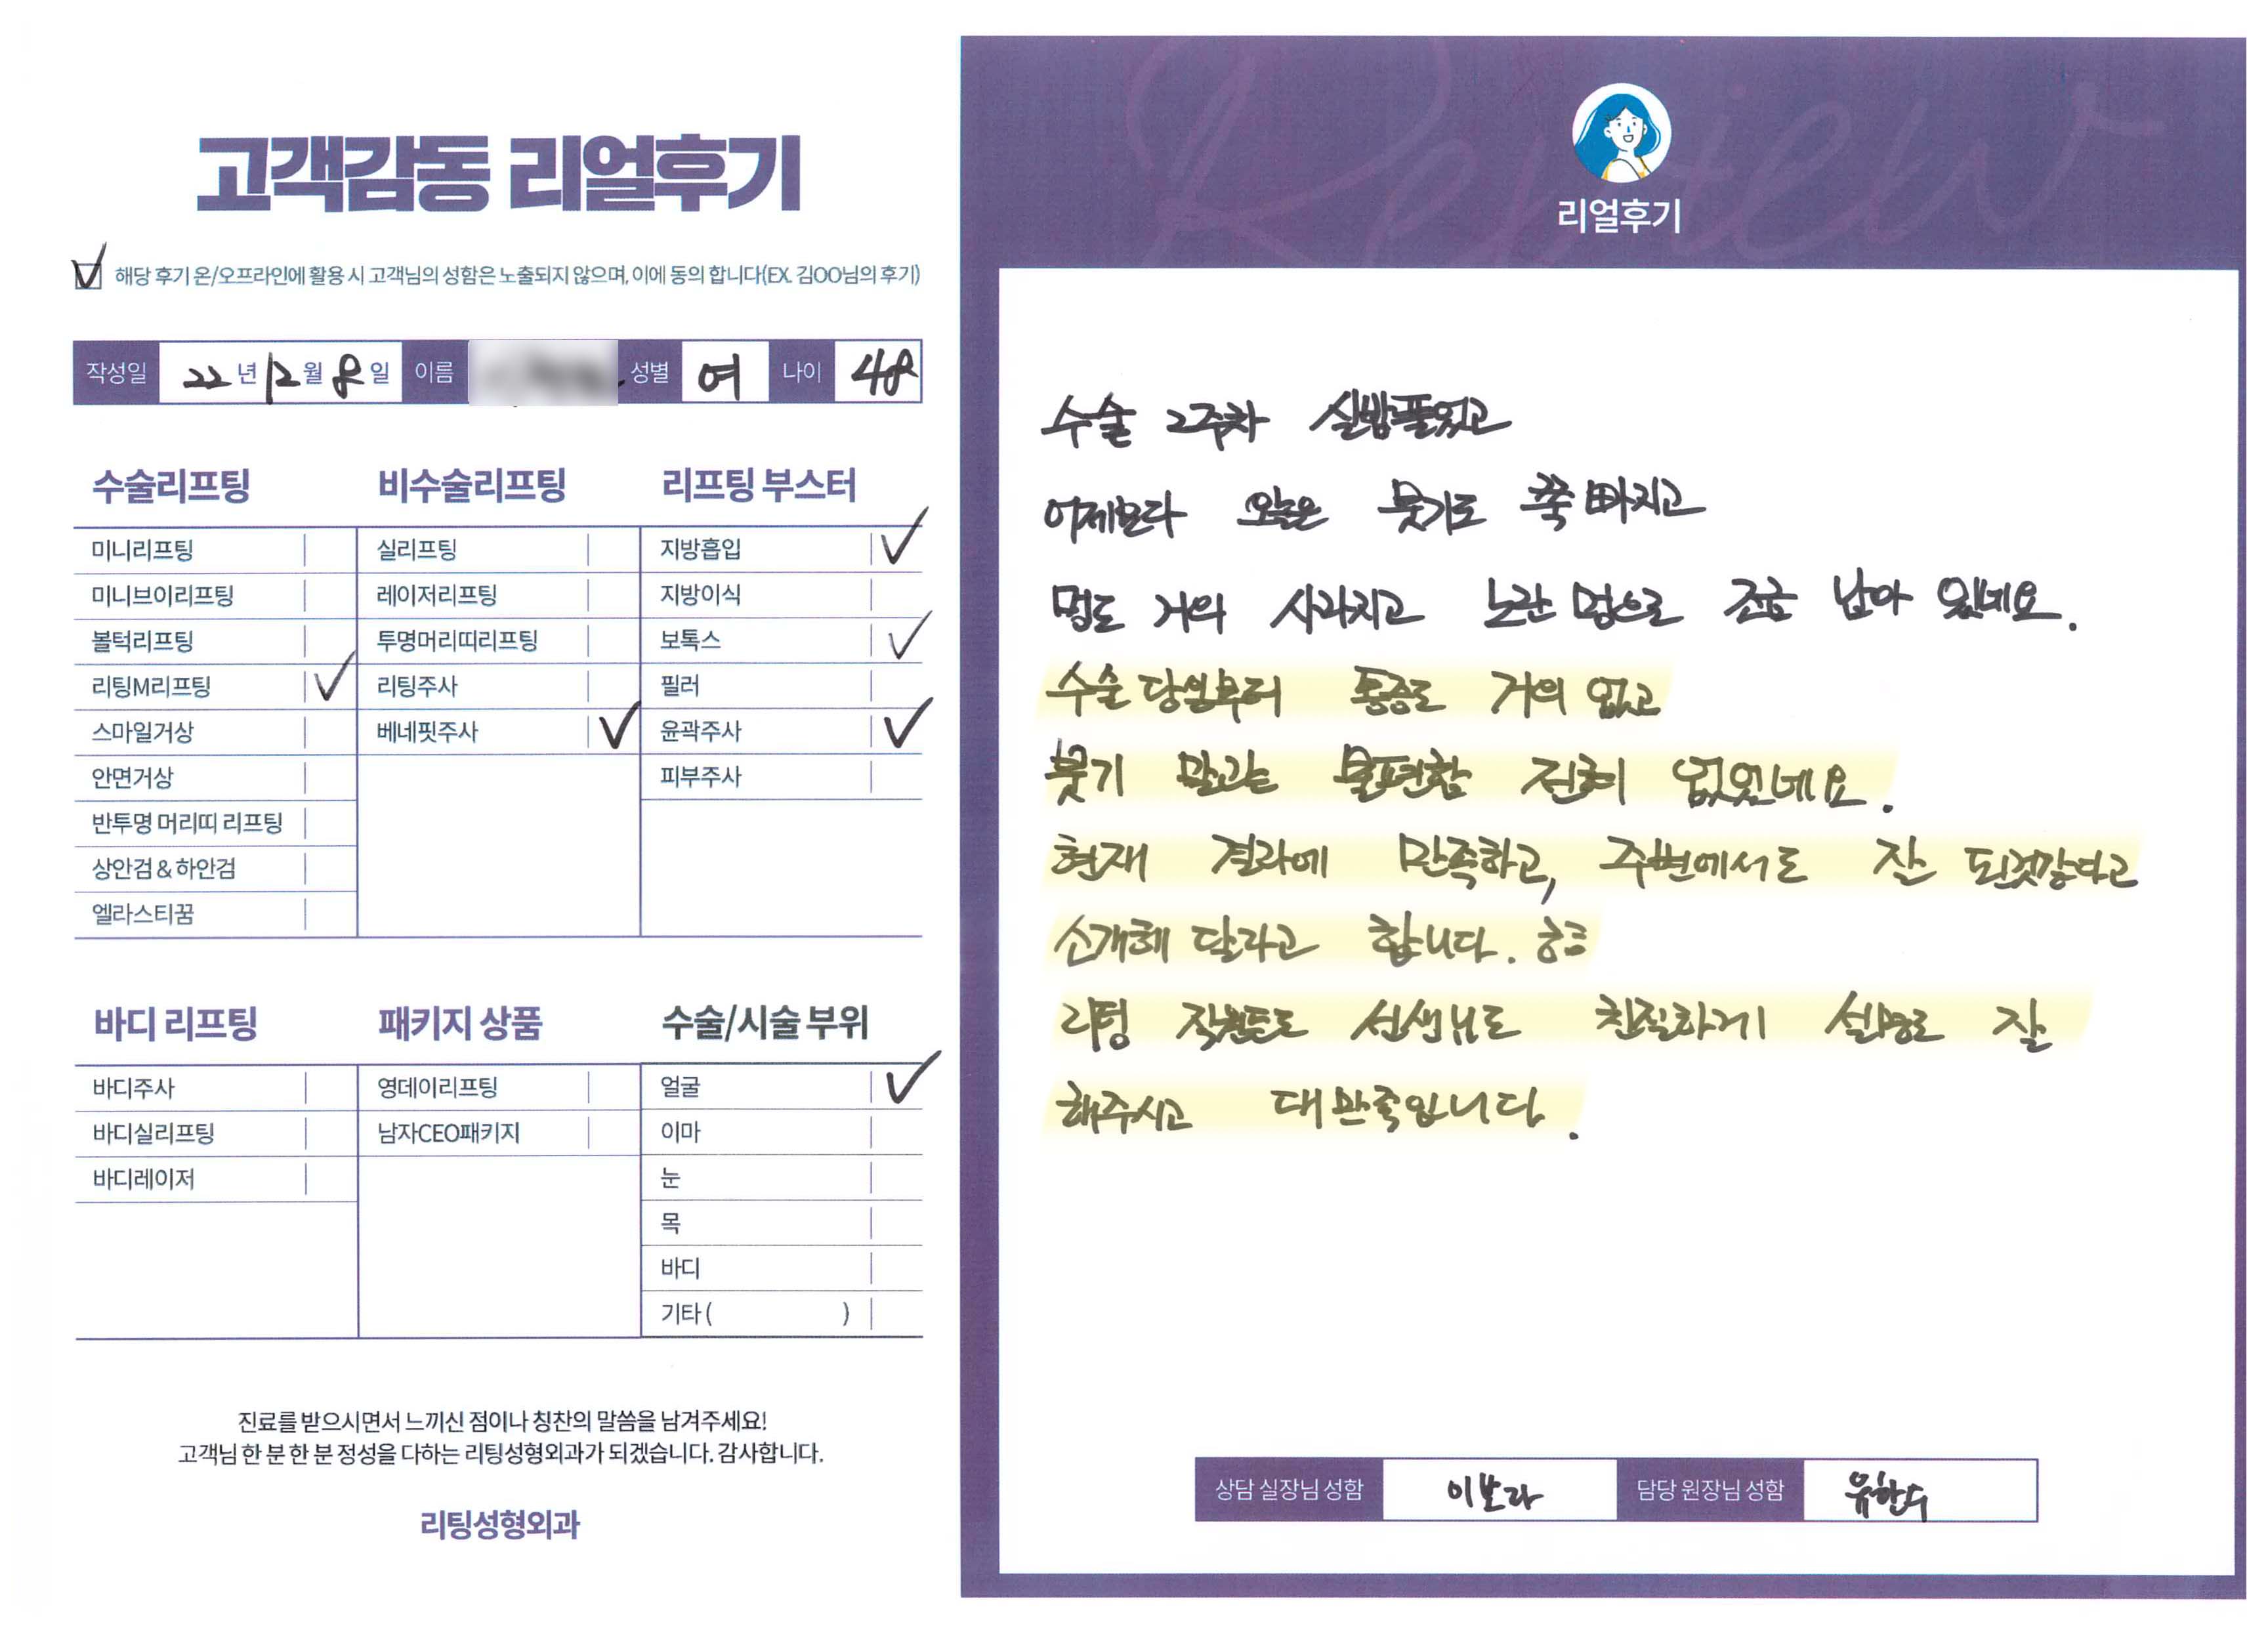 고객감동 리얼후기
해당 후기 온/오프라인에 활용 시 고객님의 성함은 노출되지 않으며, 이에 동의 합니다(EX. 김OO님의 후기)
작성일 22년 12월 8일 이름 성별 여 나이 48
수술리프팅
미니리프팅
미니브이리프팅
볼턱리프팅
리팅M리프팅 ✓
스마일거상
안면거상
반투명 머리띠 리프팅
상안검 & 하안검
엘라스티꿈
비수술리프팅
실리프팅
레이저리프팅
투명머리띠리프팅
리팅주사
베네핏주사 ✓
리프팅 부스터
지방흡입 ✓
지방이식
보톡스 ✓
필러
윤곽주사 ✓
피부주사
바디 리프팅
바디주사
바디실리프팅
바디레이저
패키지 상품
영데이리프팅
남자CEO패키지
수술/시술 부위
얼굴 ✓
이마
눈
목
바디
기타 ( )
진료를 받으시면서 느끼신 점이나 칭찬의 말씀을 남겨주세요!
고객님 한 분 한 분 정성을 다하는 리팅성형외과가 되겠습니다. 감사합니다.
리팅성형외과
Review
리얼후기
수술 2주차 실밥풀었고
어제보다 오늘은 붓기도 쭉 빠지고
멍도 거의 사라지고 노란 멍으로 조금 남아 있네요.
수술 당일부터 통증도 거의 없고
붓기 말고는 불편함 전혀 없었네요.
현재 결과에 만족하고, 주변에서도 잘 된것같다고
소개해 달라고 합니다. ㅎㅎ
리팅 직원분도 선생님도 친절하게 설명도 잘
해주시고 대만족입니다.
상담 실장님 성함 이보라 담당 원장님 성함 유한수